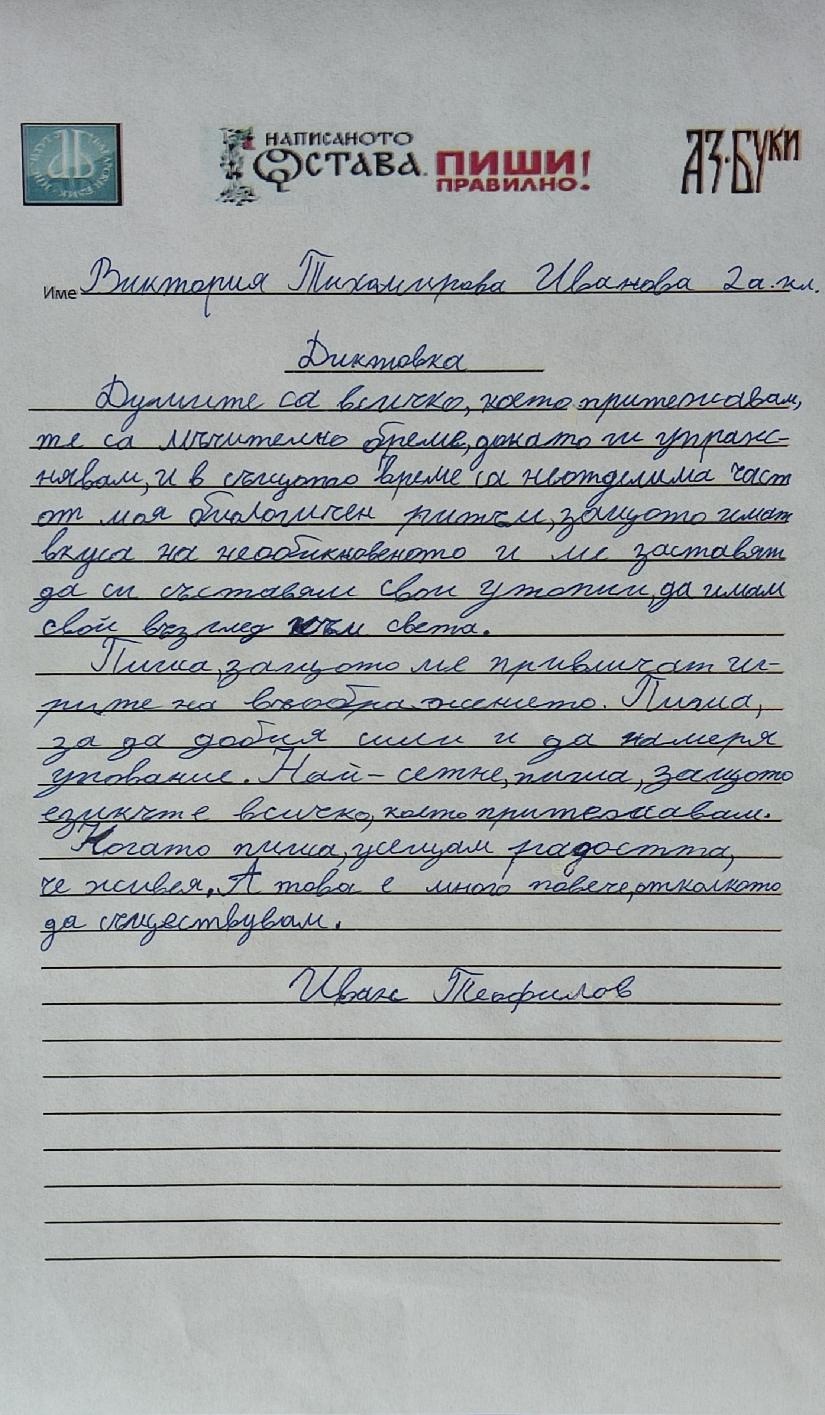 НАПИСАНОТО
ОСТАВА. ПИШИ
ПРАВИЛНО!
АЗ·БУКИ
Име Виктория Тихомирова Иванова 2а.кл.
Диктовка
Думите са всичко, което притежавам,
те са мъчително бреме, докато ги упраж-
нявам, и в същото време са неотделима част
от моя биологичен ритъм, защото имат
вкуса на необикновеното и ме заставят
да си съставям свои утопии, да имам
свой възглед към света.
Пиша, защото ме привличат иг-
рите на въображението. Пиша,
за да добия сили и да намеря
упование. Най-сетне, пиша, защото
езикът е всичко, което притежавам.
Когато пиша, усещам радостта,
че живея. А това е много повече, отколкото
да съществувам.
Иван Теофилов